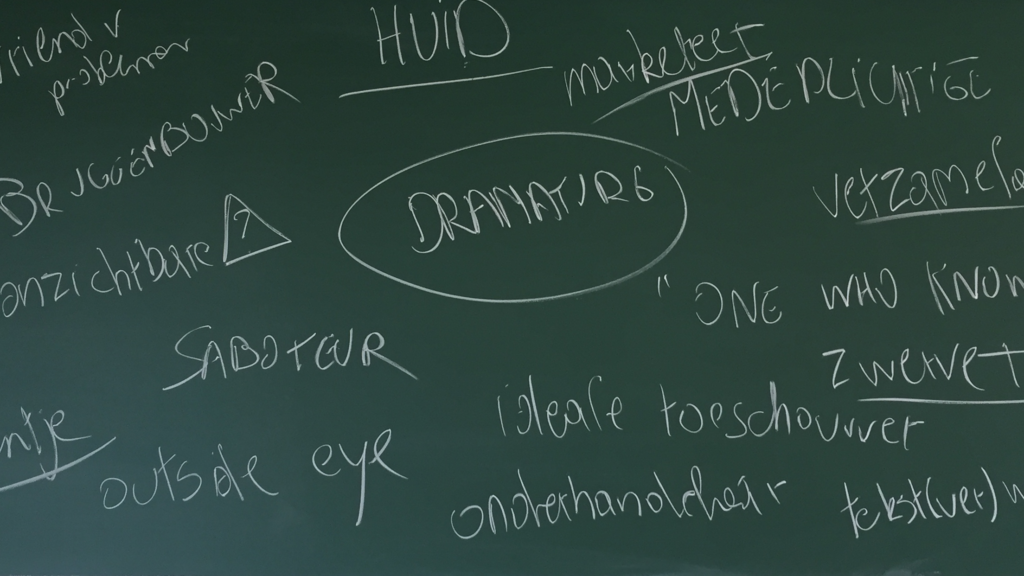 vriend v
problemen
HUID
marketeer
MEDEPLICHTIGE
BRUGGENBOUWER
DRAMATURG
verzamela
onzichtbare
?
"ONE WHO KNOW
SABOTEUR
zwerver
ideale toeschouwer
ntje
outside eye
onderhandelaar
tekst(ver)w